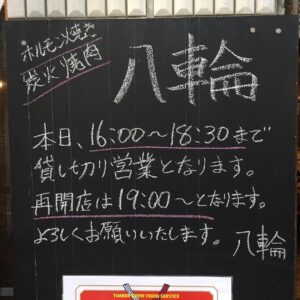 ホルモン焼き
炭火焼肉
八輪
本日、16:00～18:30まで
貸し切り営業となります。
再開店は19:00～となります。
よろしくお願いいたします。
八輪
TIMBER CREW FOOD SERVICE